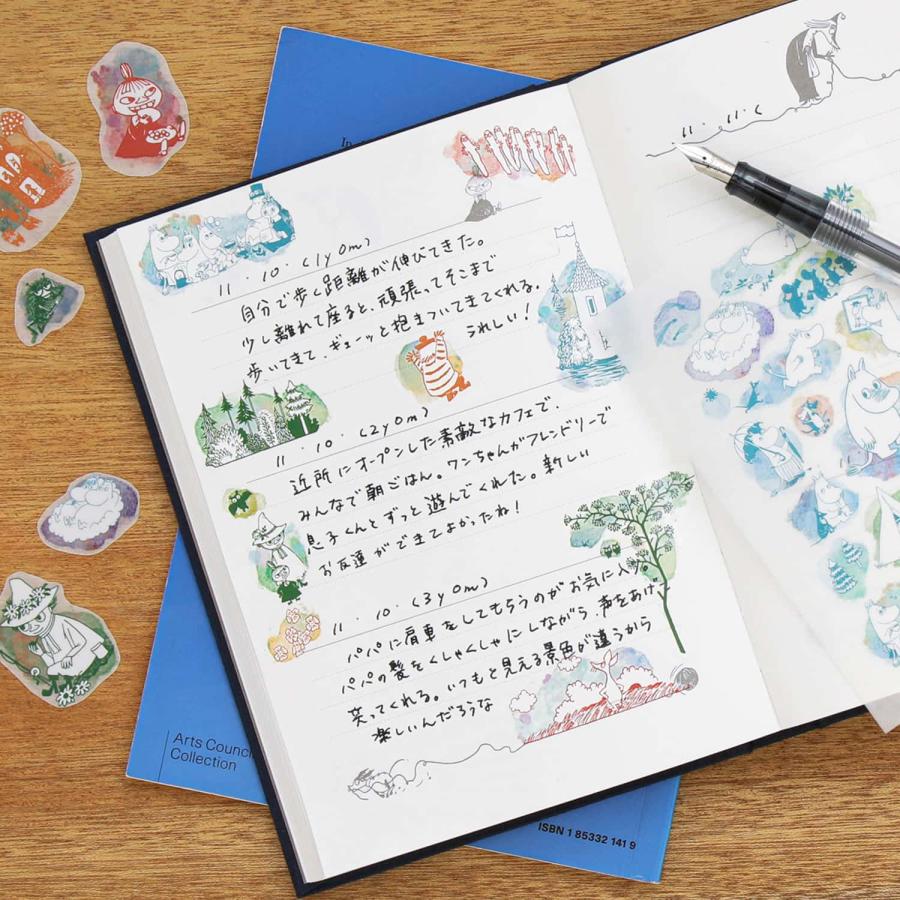 11・10・(1y0m)
自分で歩く距離が伸びてきた。
少し離れて座ると、頑張ってそこまで
歩いてきて、ギューッと抱きついてきてくれる。
うれしい!
11・10・(2y0m)
近所にオープンした素敵なカフェで、
みんなで朝ごはん。ワンちゃんがフレンドリーで
息子くんとずっと遊んでくれた。新しい
お友達ができてよかったね!
11・10・(3y0m)
パパに肩車をしてもらうのがお気に入り。
パパの髪をくしゃくしゃにしながら、声をあげて
笑ってくれる。いつもと見える景色が違うから
楽しいんだろうな
11・11・(
Arts Counc
Collection
ISBN 1 85332 141 9